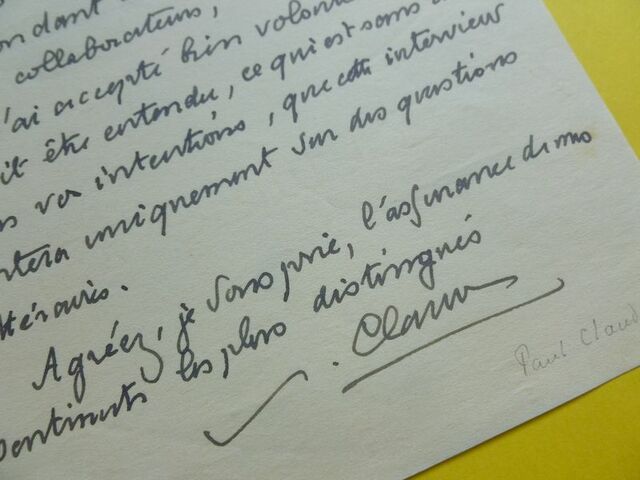 ondant
collaborateurs,
'ai accepté bien volon
it être entendu, ce qui est sans d
s vos intentions, que cette interview
rtera uniquement sur des questions
ttéraires.
Agréez, je vous prie, l'assurance de mes
sentiments les plus distingués
Paul Claud